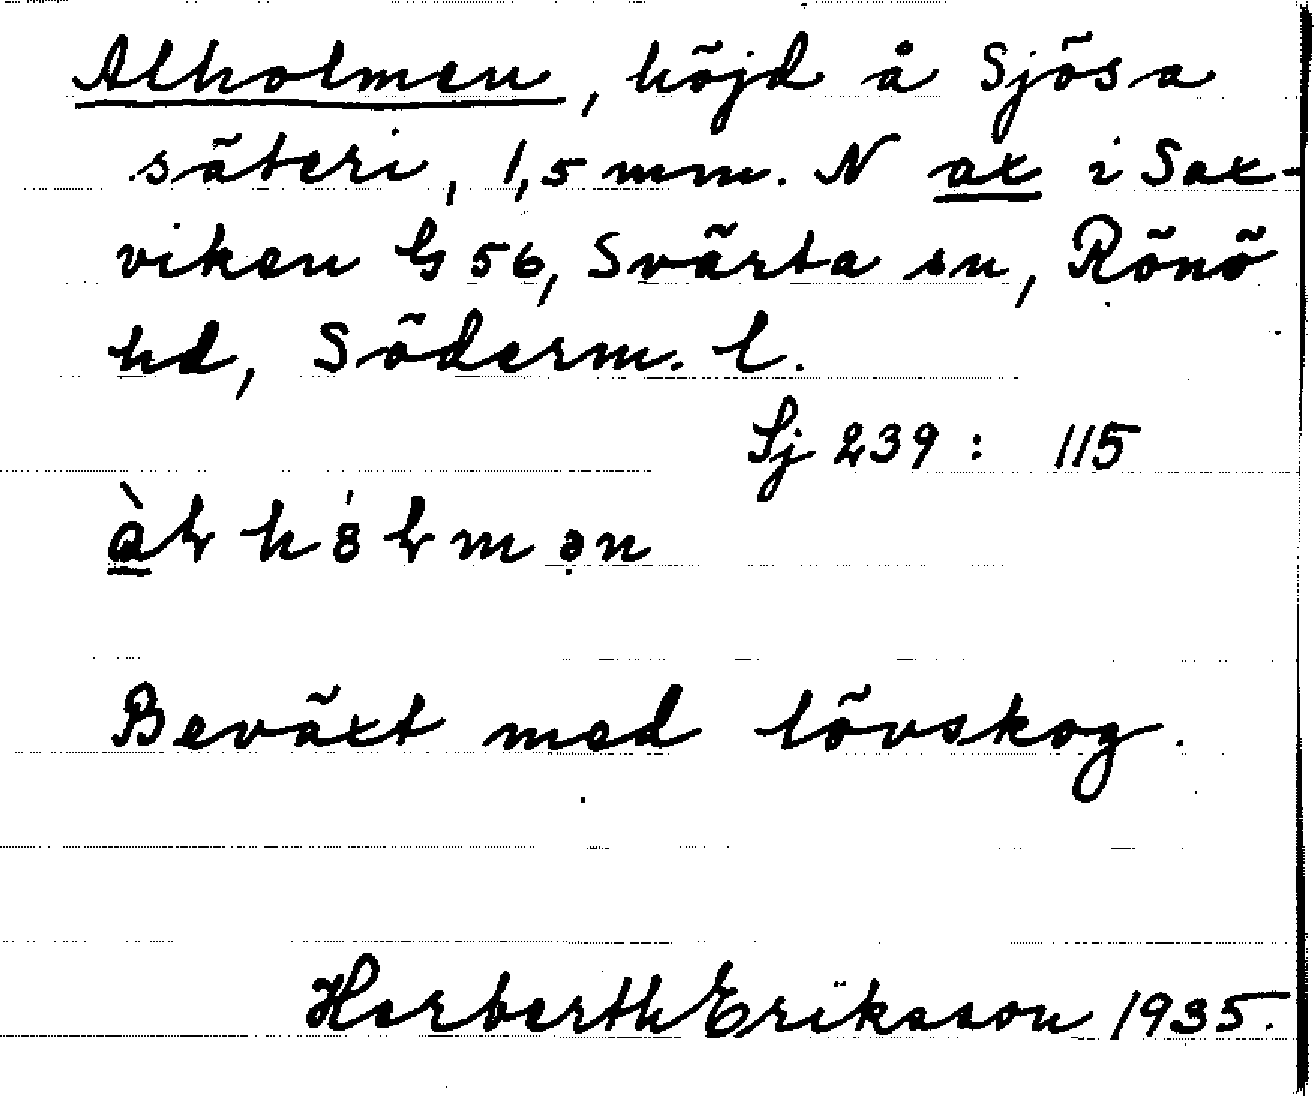 Alholmen, höjd å Sjösa
säteri, 1,5 mm. N ax i Sax-
viken G 56, Svärta sn, Rönö
hd, Söderm. l.
Sj 239: 115
Beväxt med lövskog.
Herberth Eriksson 1935.